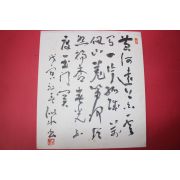 黄河遠上白雲
間一片孤城萬
仞山羌笛何須
怨楊柳春光不
度玉門關
戊寅